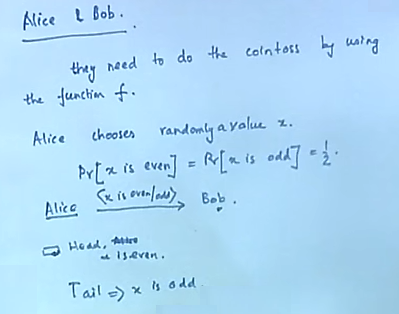 Alice & Bob.
they need to do the cointoss by using
the function f.
Alice chooses randomly a value x.
Pr[x is even] = Pr[x is odd] = 1/2.
(x is even/odd)
Alice → Bob.
Head,
x is even.
Tail => x is odd.